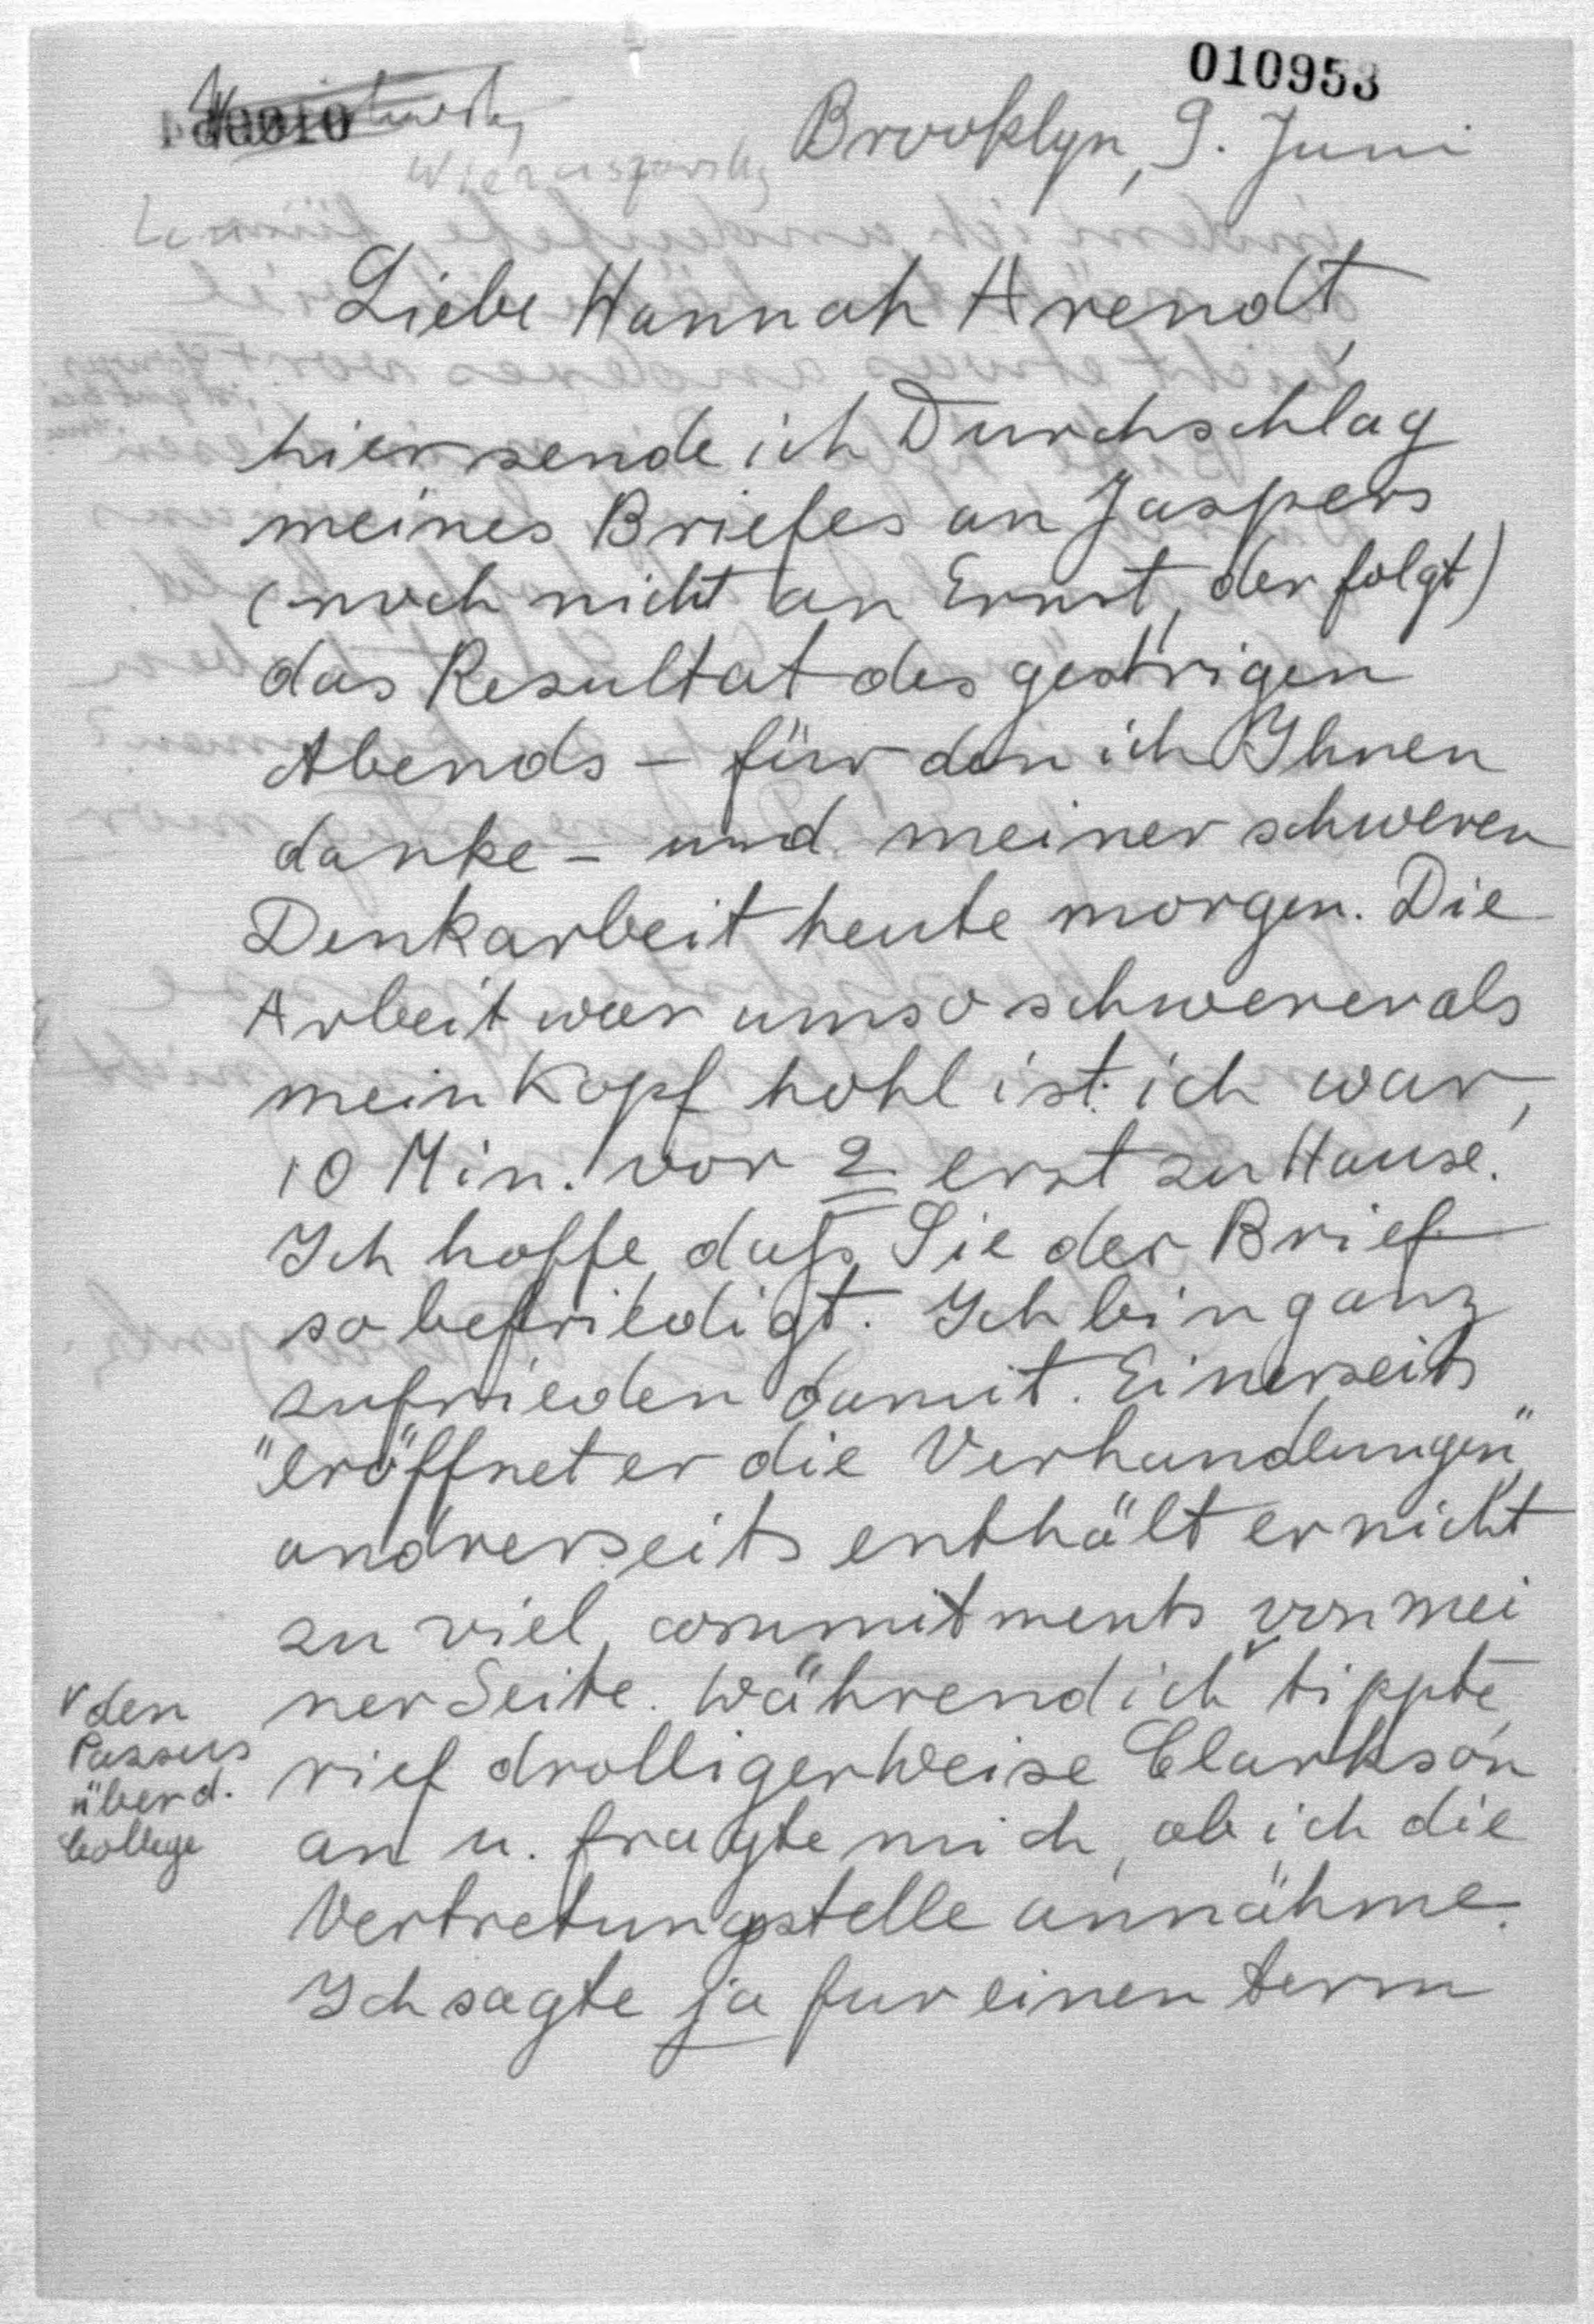 010953
Brooklyn, 9. Juni
Liebe Hannah Arendt,
hier sende ich Durchschlag
meines Briefes an Jaspers
(noch nicht an Ernst, der folgt)
das Resultat des gestrigen
Abends – für den ich Ihnen
danke – und meiner schweren
Denkarbeit heute morgen. Die
Arbeit war umso schwerer als
mein Kopf hohl ist: ich war,
10 Min. vor 2 erst zu Hause.
Ich hoffe, daß Sie der Brief
so befriedigt. Ich bin ganz
zufrieden damit. Einerseits
"eröffnet er die Verhandlungen",
andrerseits enthält er nicht
zu viel commitments von mei
ner Seite. Während ich ᵛ tippte,
rief drolligerweise Clarkson
an u. fragte mich, ob ich die
Vertretungsstelle annähme.
Ich sagte ja fur einen term
ᵛ den
Passus
über d.
College